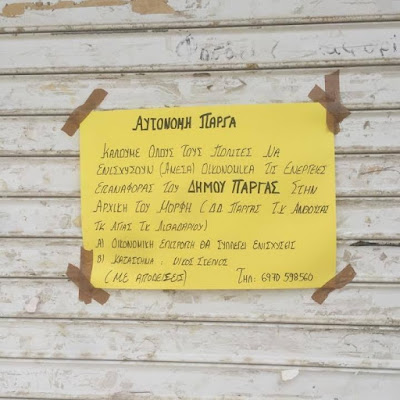 ΑΥΤΟΝΟΜΗ ΠΑΡΓΑ
ΚΑΛΟΥΜΕ ΟΛΟΥΣ ΤΟΥΣ ΠΟΛΙΤΕΣ ΝΑ
ΕΝΙΣΧΥΣΟΥΝ (ΑΜΕΣΑ) ΟΙΚΟΝΟΜΙΚΑ ΤΙΣ ΕΝΕΡΓΕΙΕΣ
ΕΠΑΝΑΦΟΡΑΣ ΤΟΥ ΔΗΜΟΥ ΠΑΡΓΑΣ ΣΤΗΝ
ΑΡΧΙΚΗ ΤΟΥ ΜΟΡΦΗ (Δ.Δ. ΠΑΡΓΑΣ Τ.Κ ΑΝΘΟΥΣΑΣ
ΤΚ ΑΓΙΑΣ ΤΚ ΛΙΒΑΔΑΡΙΟΥ)
Α) ΟΙΚΟΝΟΜΙΚΗ ΕΠΙΤΡΟΠΗ ΘΑ ΣΥΛΛΕΓΕΙ ΕΝΙΣΧΥΣΕΙΣ
Β) ΚΑΤΑΣΤΗΜΑ :
(ΜΕ ΑΠΟΔΕΙΞΕΙΣ) ΤΗΛ: 6970 598560